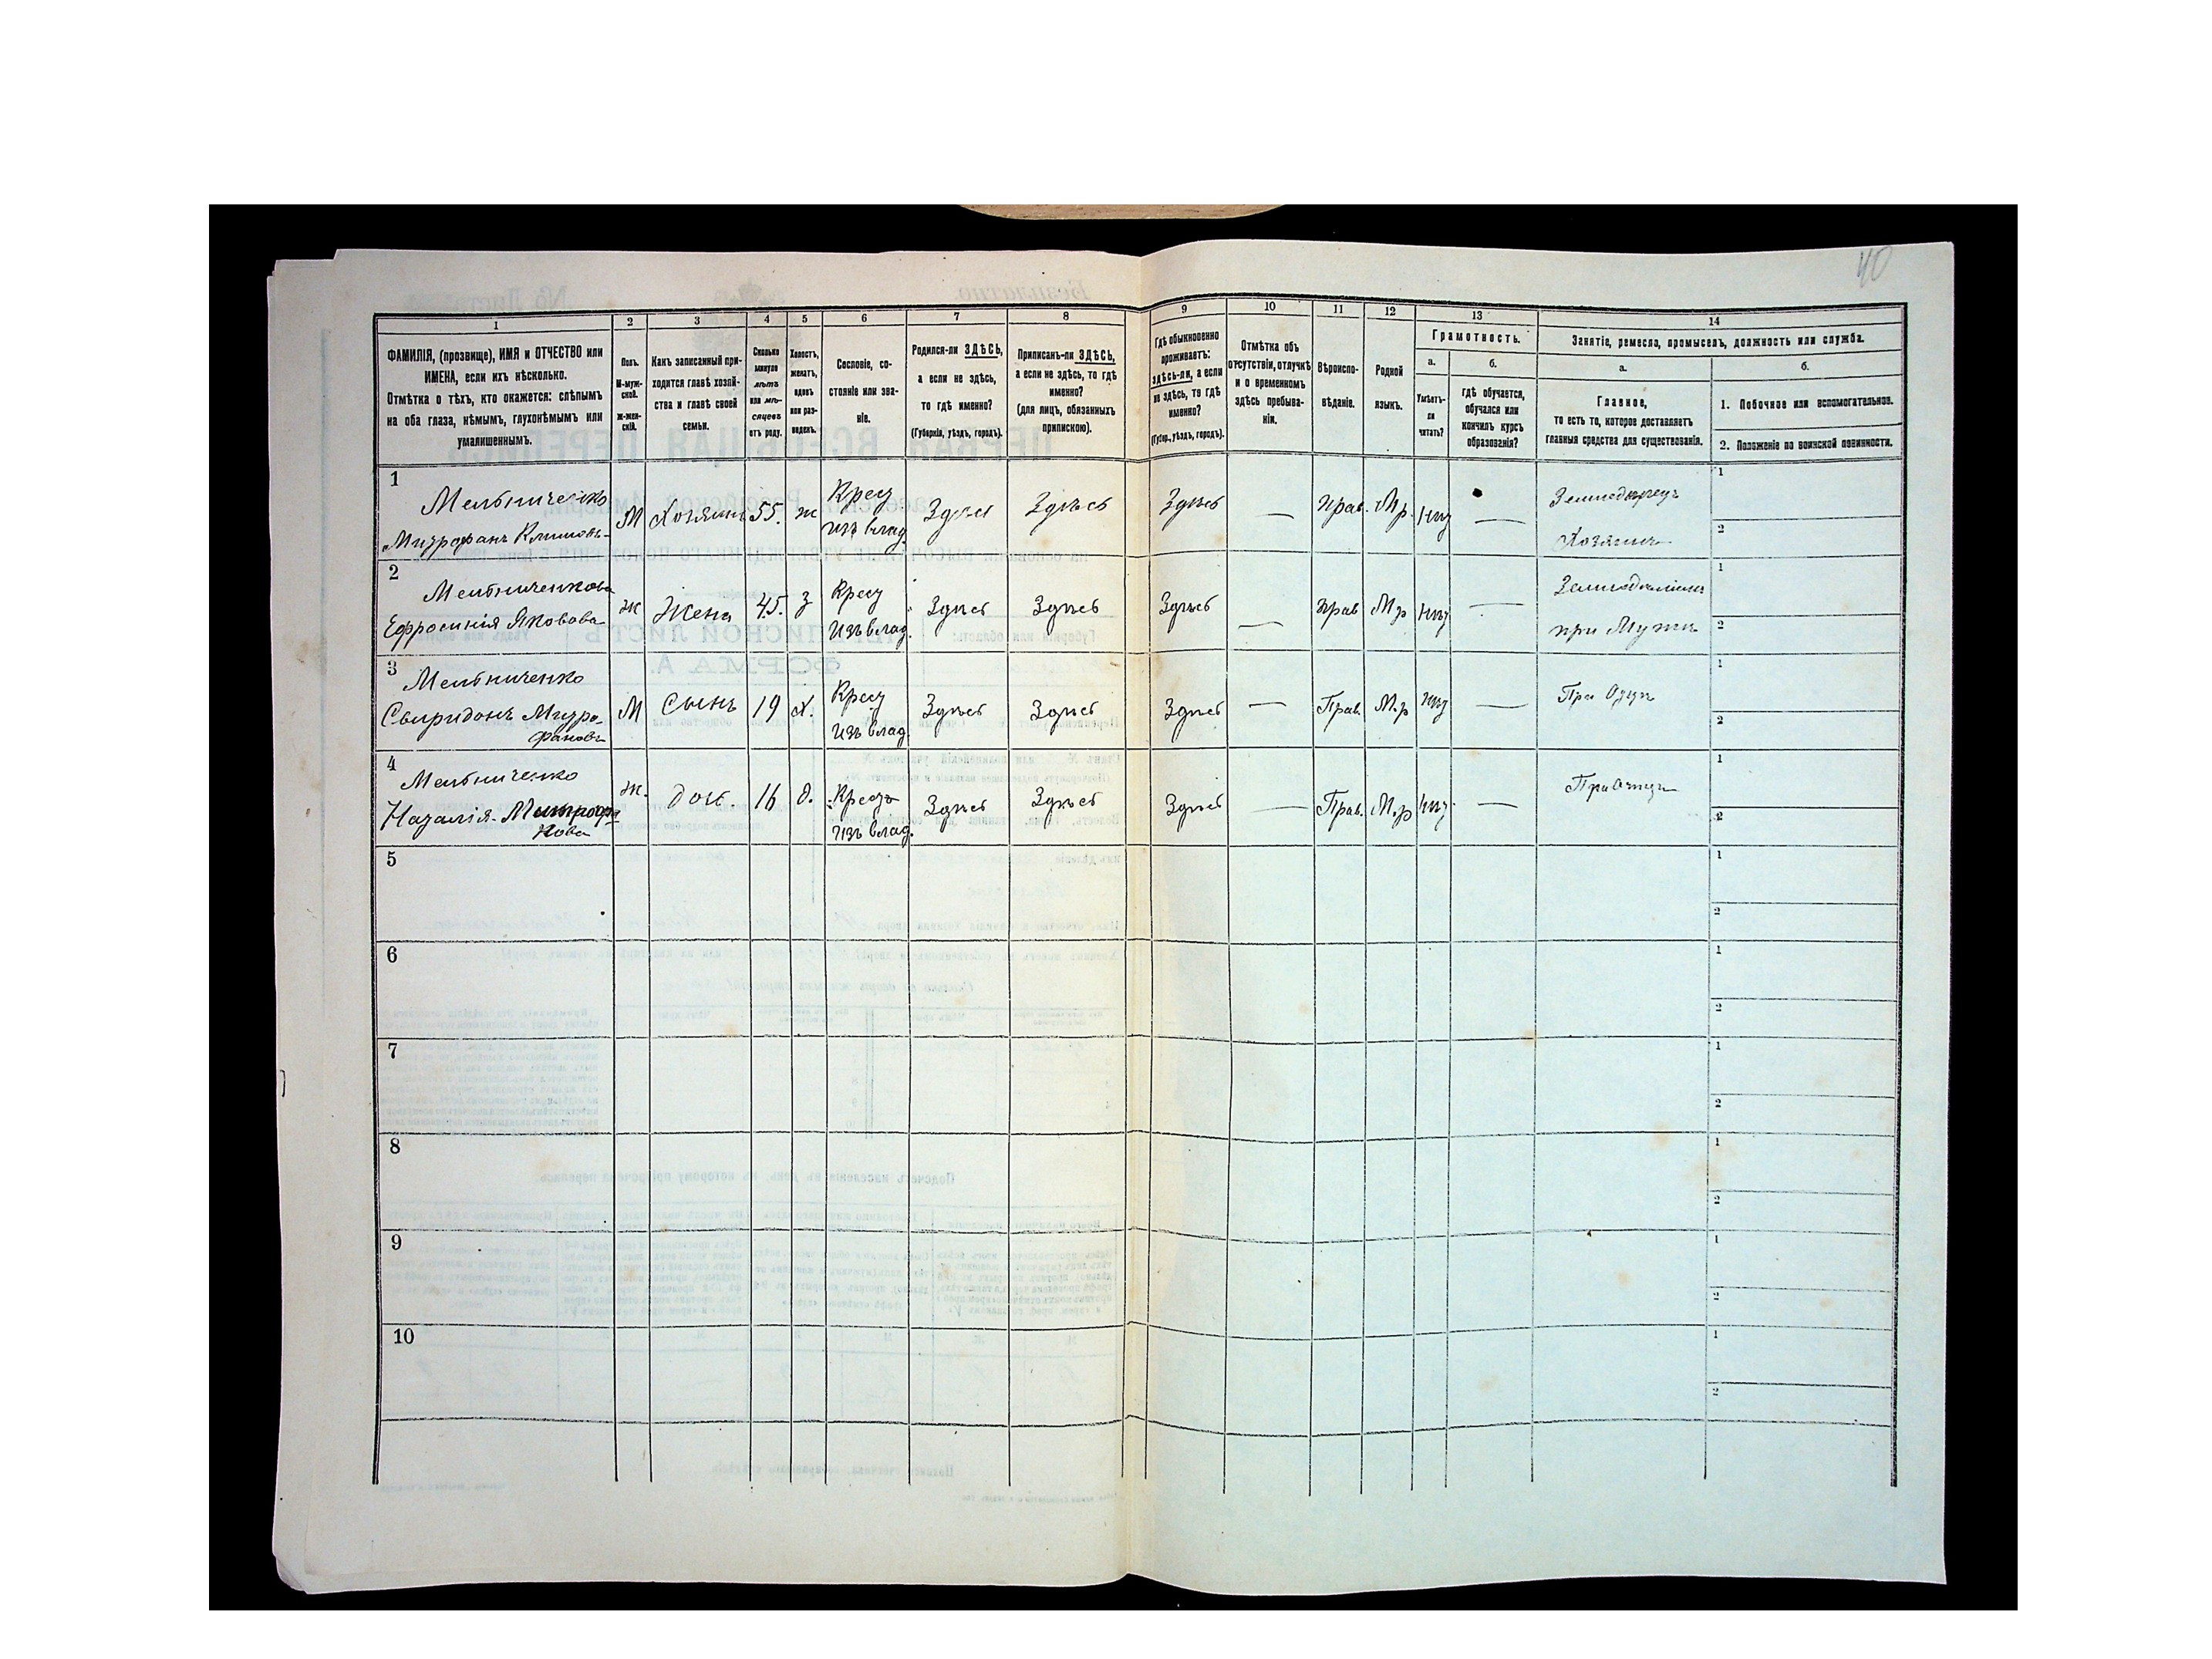 40
1 2 3 4 5 6 7 8 9 10 11 12 13 14
ФАМИЛІЯ, (прозвище), ИМЯ и ОТЧЕСТВО или
ИМЕНА, если ихъ нѣсколько.
Отмѣтка о тѣхъ, кто окажется: слѣпымъ
на оба глаза, нѣмымъ, глухонѣмымъ или
умалишеннымъ.
Полъ.
М-муж-
ской.
Ж-жен-
скій.
Какъ записанный при-
ходится главѣ хозяй-
ства и главѣ своей
семьи.
Сколько
минуло
лѣтъ
или мѣ-
сяцевъ
отъ роду.
Холостъ,
женатъ,
вдовъ
или раз-
веденъ.
Сословіе, со-
стояніе или зва-
ніе.
Родился-ли ЗДѢСЬ,
а если не здѣсь,
то гдѣ именно?
(Губернія, уѣздъ, городъ).
Приписанъ-ли ЗДѢСЬ,
а если не здѣсь, то гдѣ
именно?
(для лицъ, обязанныхъ
припискою).
Гдѣ обыкновенно
проживаетъ:
здѣсь-ли, а если
не здѣсь, то гдѣ
именно?
(Губер., уѣздъ, городъ).
Отмѣтка объ
отсутствіи, отлучкѣ
и о временномъ
здѣсь пребыва-
ніи.
Вѣроиспо-
вѣданіе.
Родной
языкъ.
Грамотность.
а.
Умѣетъ-
ли
читать?
б.
гдѣ обучается,
обучался или
кончилъ курсъ
образованія?
Занятіе, ремесло, промыселъ, должность или служба.
а.
Главное,
то есть то, которое доставляетъ
главныя средства для существованія.
б.
1. Побочное или вспомогательное.
2. Положеніе по воинской повинности.
1
Мельниченко
Митрофанъ Климовъ
М Хозяинъ 55. ж
Крест
изъ влад.
Здѣсь Здѣсь Здѣсь — Прав. М.р. нѣт —
Земледѣлецъ
Хозяинъ
1
2
2
Мельниченкова
Ефросинія Яковова
ж Жена 45. з
Крест
изъ влад.
Здѣсь Здѣсь Здѣсь — Прав М.р нѣт —
при Мужѣ
1
2
3
Мельниченко
Свиридонъ Митро-
фановъ
М Сынъ 19 х.
Крест
изъ влад.
Здѣсь Здѣсь Здѣсь — Прав. М.р нѣт —
При Отцѣ
1
2
4
Мельниченко
Наталія Митрофа
нова
ж. доч. 16 д.
Крест
изъ влад.
Здѣсь Здѣсь Здѣсь — Прав. М.р нѣт —
При Отцѣ
1
2
5
1
2
6
1
2
7
1
2
8
1
2
9
1
2
10
1
2